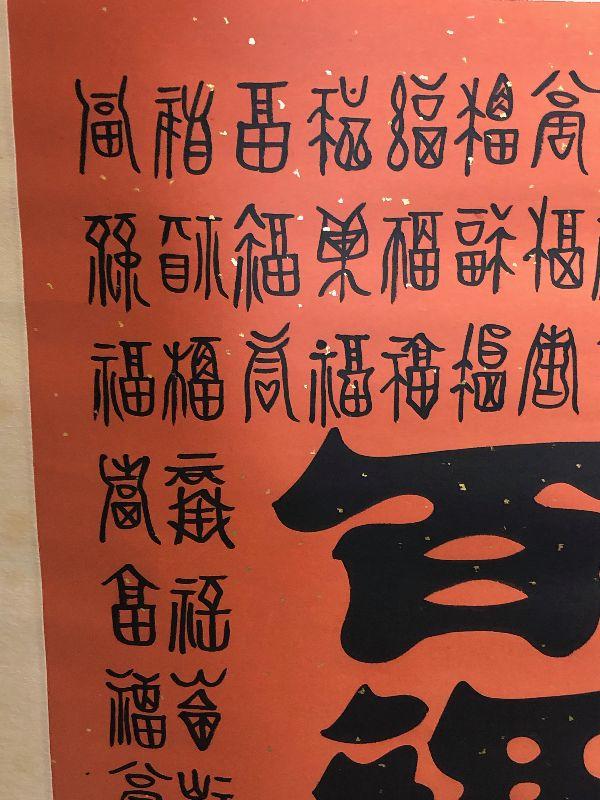 福福福福福福福
福福福福福福福
福福福福福福福
福福
福福
福福
百